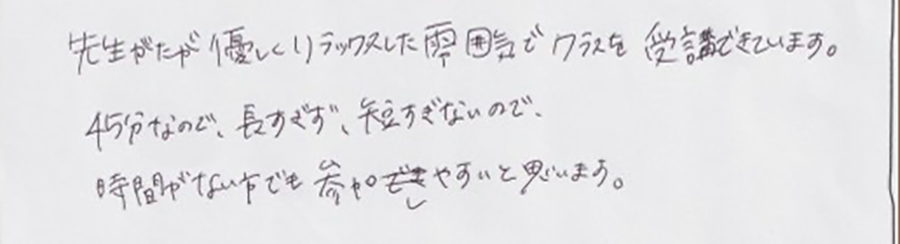 先生がたが優しくリラックスした雰囲気でクラスを受講できています。
45分なので、長すぎず、短すぎないので、
時間がない方でも参加しやすいと思います。